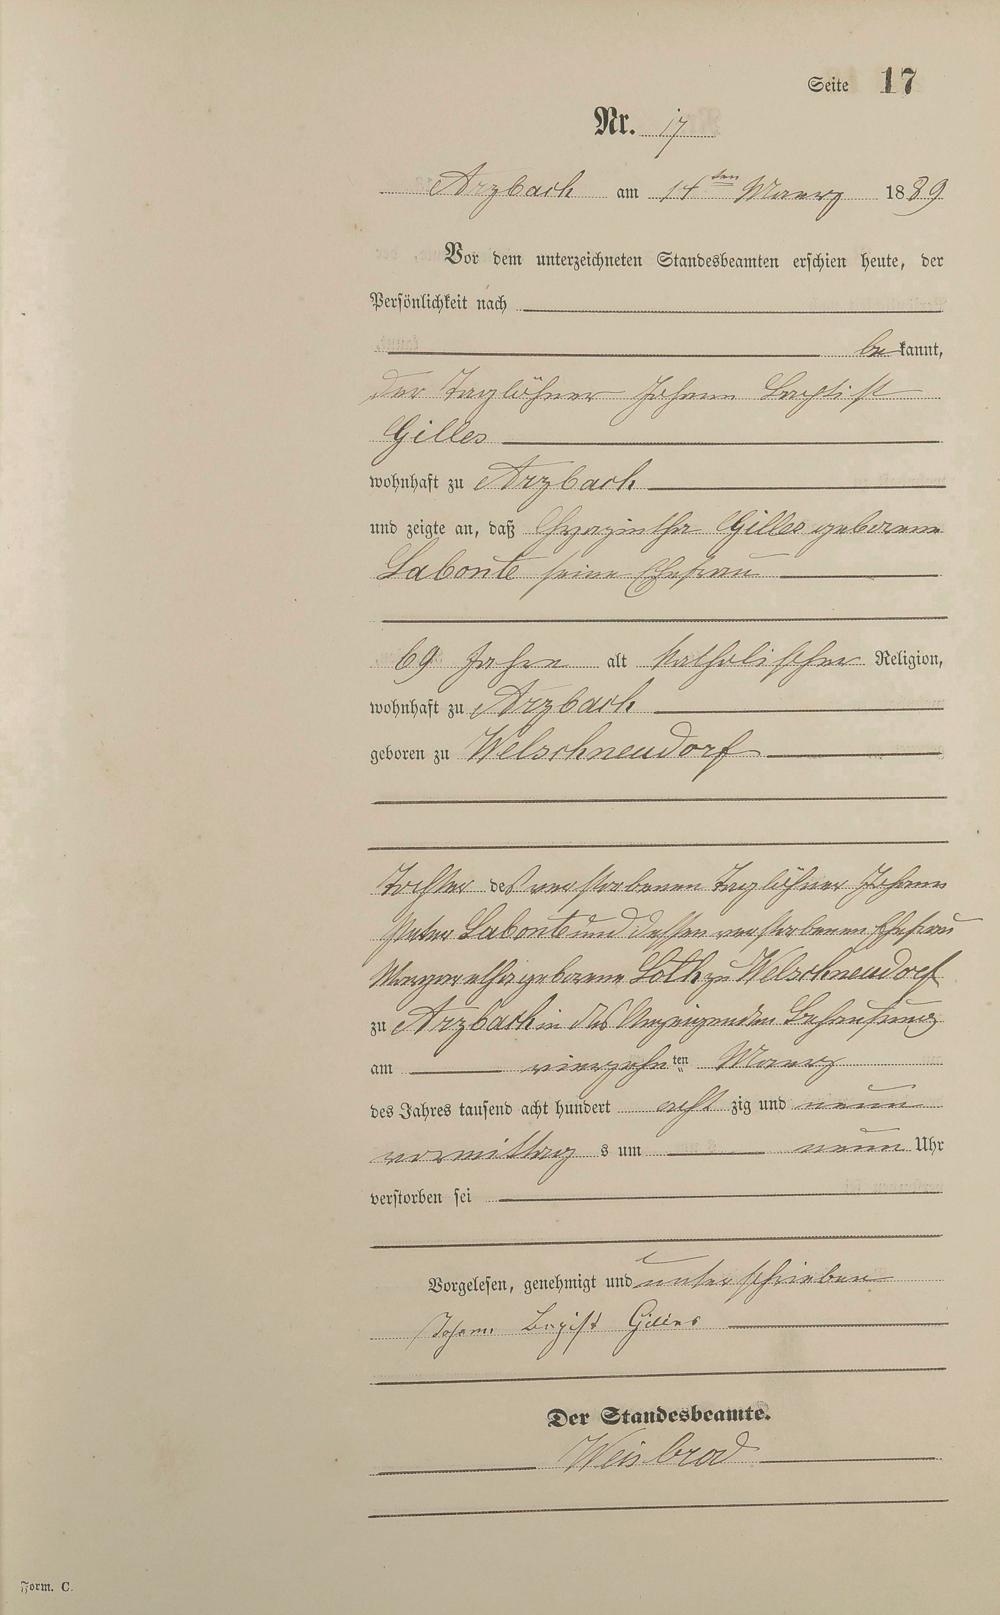 Seite 17
Nr. 17
Arzbach am 14ten Maerz 1889
Vor dem unterzeichneten Standesbeamten erschien heute, der
Persönlichkeit nach
bekannt,
der Taglöhner Johann Baptist
Gilles
wohnhaft zu Arzbach
und zeigte an, daß Gilles geborene
Labonte seine Ehefrau
69 Jahre alt katholischer Religion,
wohnhaft zu Arzbach
geboren zu Welschneudorf
Tochter des verstorbenen Taglöhner Johann
Peter Labonte und dessen verstorbenen Ehefrau
Margaretha geborene Loth zu Welschneudorf
zu Arzbach in des Anzeigenden Behausung
am vierzehnten Maerz
des Jahres tausend acht hundert achtzig und neun
vormittags um neun Uhr
verstorben sei
Vorgelesen, genehmigt und unterschrieben
Johann Gilles
Der Standesbeamte.
Weisbrod
Form. C.